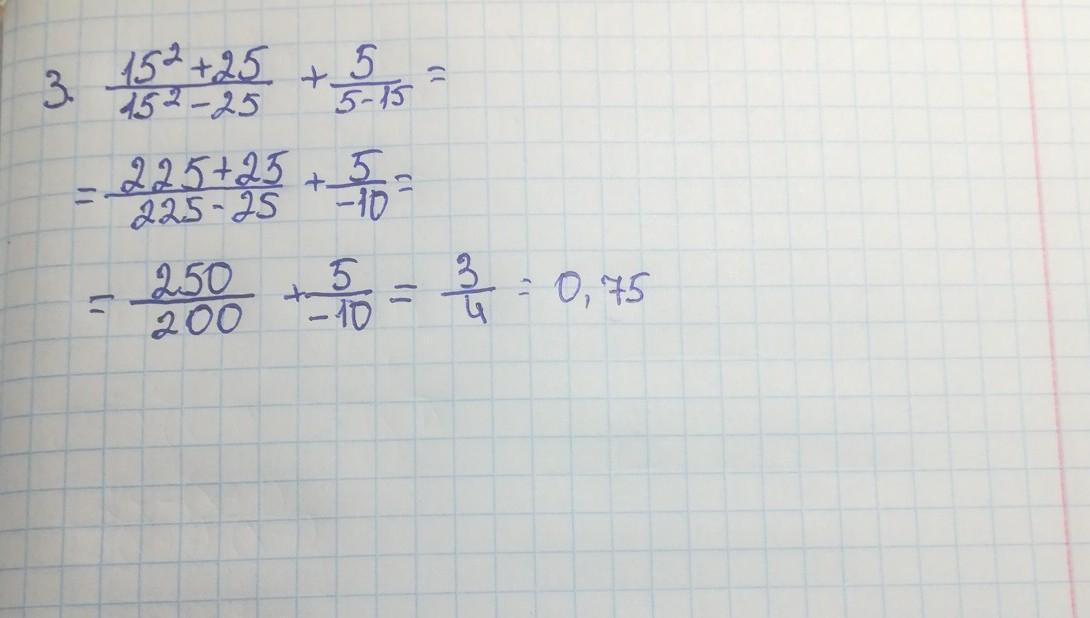 3. (15²+25)/(15²-25) + 5/(5-15) =
= (225+25)/(225-25) + 5/(-10) =
= 250/200 + 5/(-10) = 3/4 = 0,75